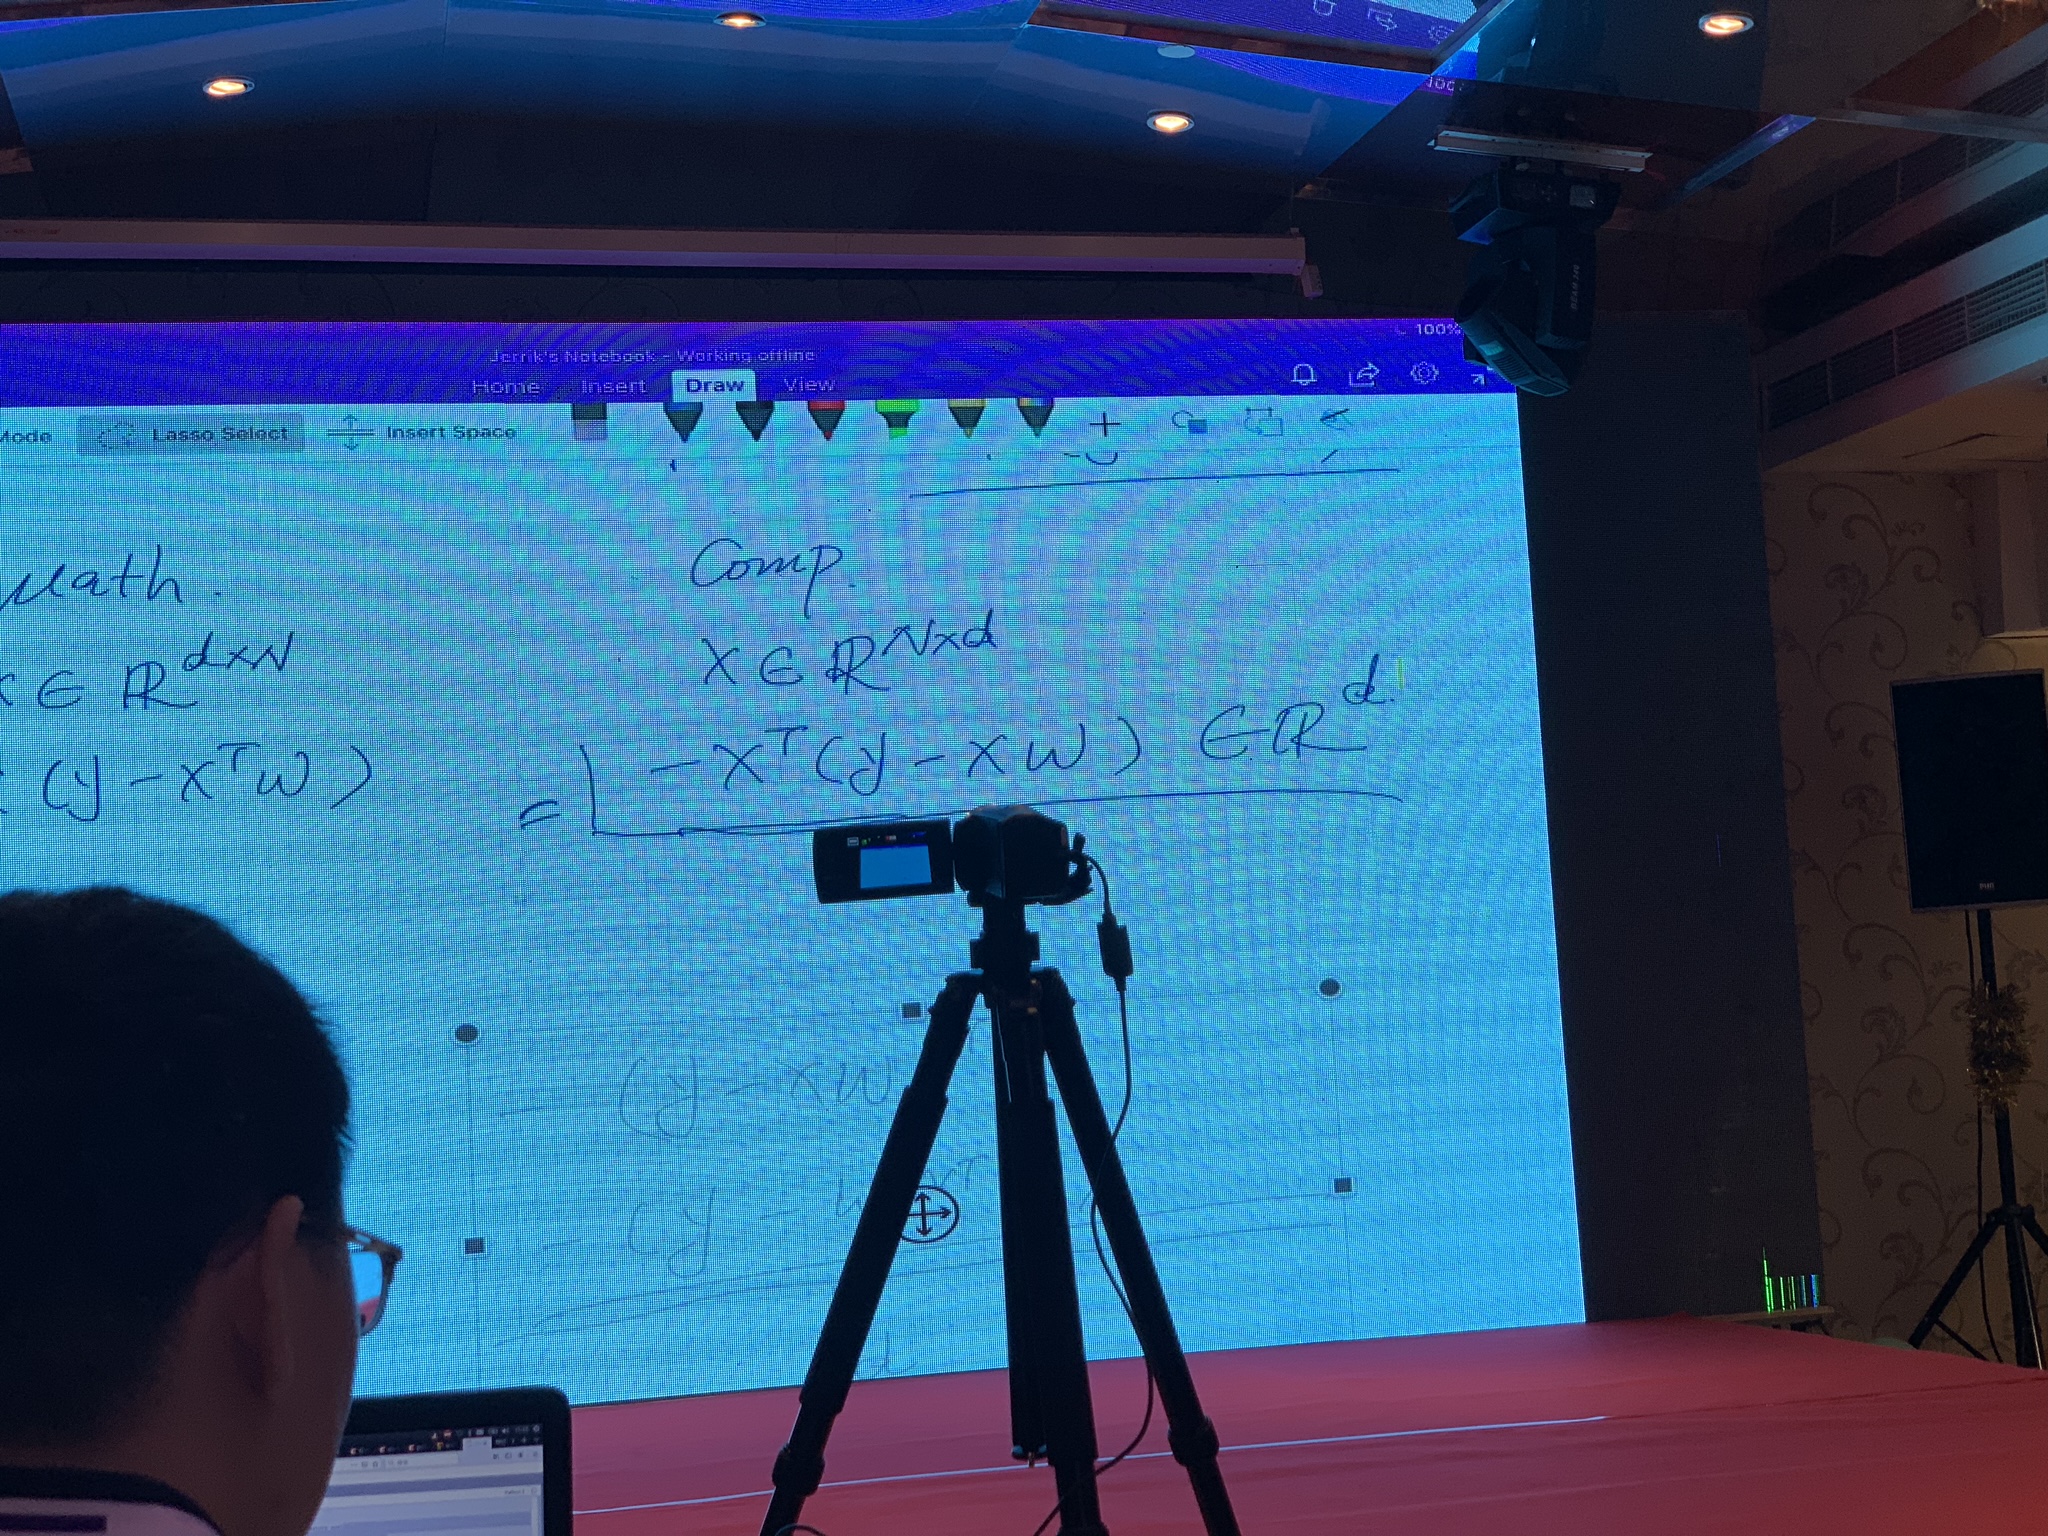 100%
Jerrik's Notebook - Working offline
Home Insert Draw View
Mode Lasso Select Insert Space
Math. Comp.
X ∈ ℝ^{d×N} X ∈ ℝ^{N×d}
(y - X^T W) = -X^T (y - XW) ∈ ℝ^d.
(y - XW
(y - W